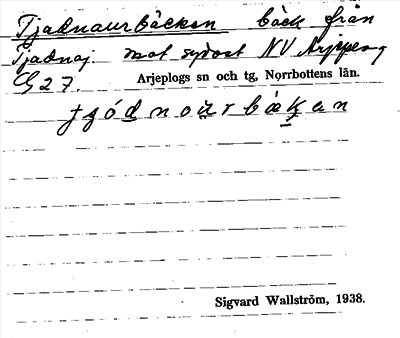 Tjadnaurbäcken bäck från
Tjadnaj mot sydost NV Arjeplog
G 27. Arjeplogs sn och tg, Norrbottens län.
Sigvard Wallström, 1938.